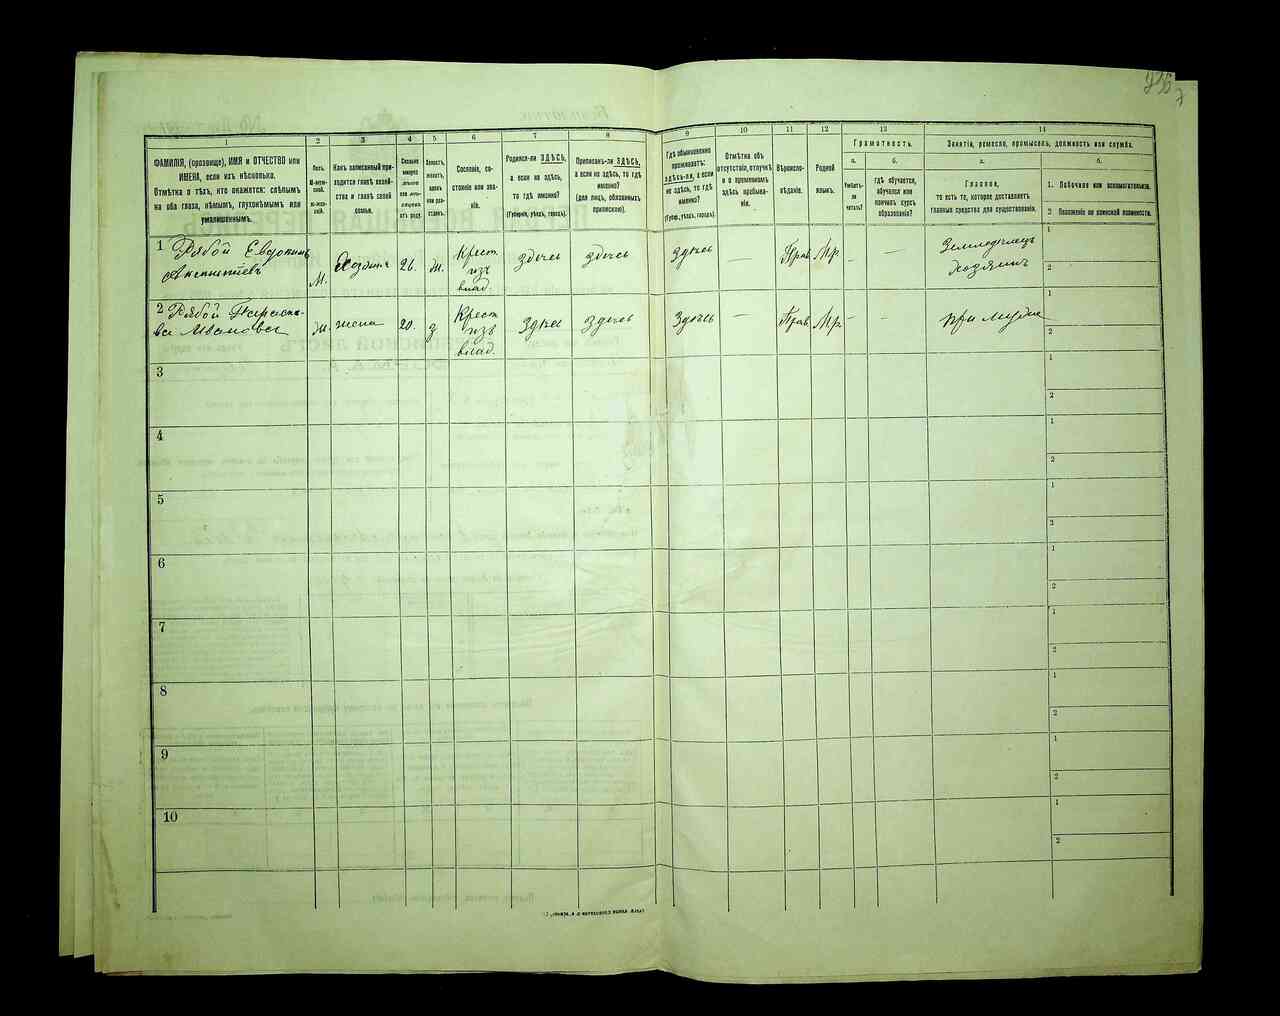 1
2
3
4
5
6
7
8
9
10
11
12
13
14
ФАМИЛІЯ, (прозвище), ИМЯ и ОТЧЕСТВО или
ИМЕНА, если ихъ нѣсколько.
Отмѣтка о тѣхъ, кто окажется: слѣпымъ
на оба глаза, нѣмымъ, глухонѣмымъ или
умалишеннымъ.
Полъ.
М-мужской.
Ж-женскій.
Какъ записанный приходится главѣ хозяйства и главѣ своей семьи.
Сколько минуло лѣтъ или мѣсяцевъ отъ роду.
Холостъ, женатъ, вдовъ или разведенъ.
Сословіе, состояніе или званіе.
Родился-ли ЗДѢСЬ,
а если не здѣсь,
то гдѣ именно?
(Губернія, уѣздъ, городъ).
Приписанъ-ли ЗДѢСЬ,
а если не здѣсь, то гдѣ
именно?
(для лицъ, обязанныхъ
припискою).
Гдѣ обыкновенно
проживаетъ:
здѣсь-ли, а если
не здѣсь, то гдѣ
именно?
(Губер., уѣздъ, городъ).
Отмѣтка объ
отсутствіи, отлучкѣ
и о временномъ
здѣсь пребываніи.
Вѣроисповѣданіе.
Родной
языкъ.
Грамотность.
а.
Умѣетъ-ли
читать?
б.
гдѣ обучается,
обучался или
кончилъ курсъ
образованія?
Занятія, ремесло, промыселъ, должность или служба.
а.
Главное,
то есть то, которое доставляетъ
главныя средства для существованія.
б.
1. Побочное или вспомогательное.
2 Положеніе по воинской повинности.
1 Рябой Евдокимъ
М. Хозяинъ 26. ж. Крест. изъ влад. здѣсь здѣсь здѣсь — Прав. Мр. — — Земледѣлецъ хозяинъ
1
2
2 Рябой Параскева Иванова
ж. жена 20. з. Крест. изъ влад. здѣсь здѣсь здѣсь — Прав. Мр. — — при мужѣ
1
2
3
1
2
4
1
2
5
1
2
6
1
2
7
1
2
8
1
2
9
1
2
10
1
2